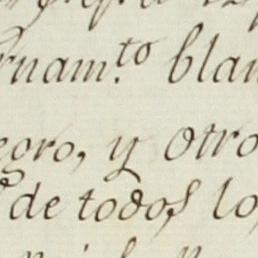 rnam.to blan
egro, y otro
de todos lo